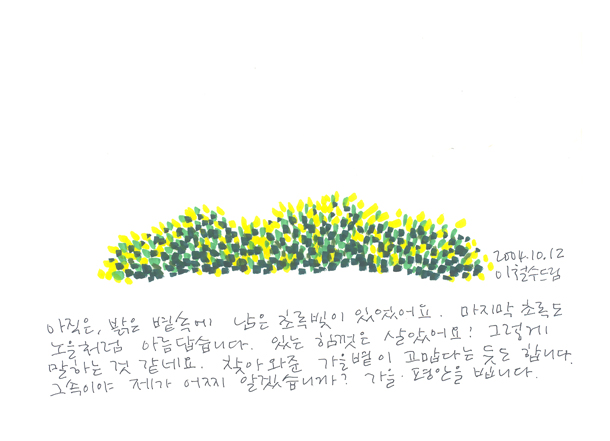 2004.10.12
이철수드림
아직은, 밝은 볕속에 남은 초록빛이 있었어요. 마지막 초록도
노을처럼 아름답습니다. 있는 힘껏은 살았어요! 그렇게
말하는 것 같네요. 찾아와준 가을볕이 고맙다는 듯도 합니다.
그속이야 제가 어찌 알겠습니까? 가을·평안을 빕니다.